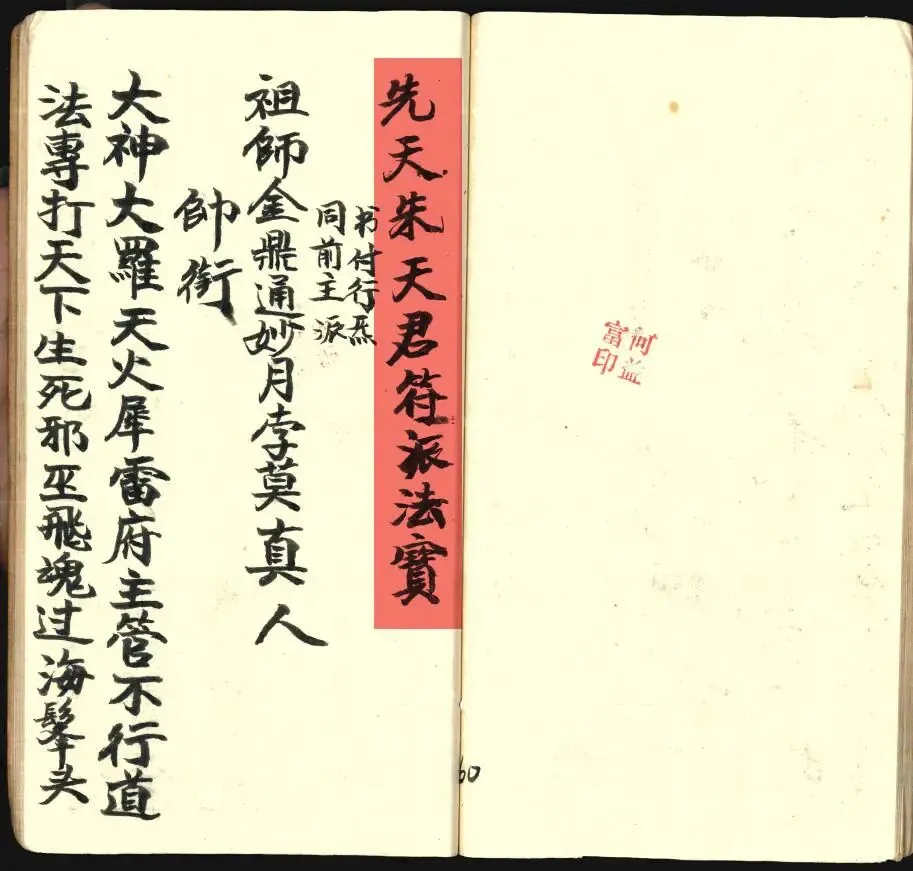 何益
富印
60
先天朱天君符派法寶
书付行炁
同前主派
祖師金鼎通妙月孛莫真人
帥衔
大神大羅天火犀雷府主管不行道
法專打天下生死邪巫飛魂过海髼头